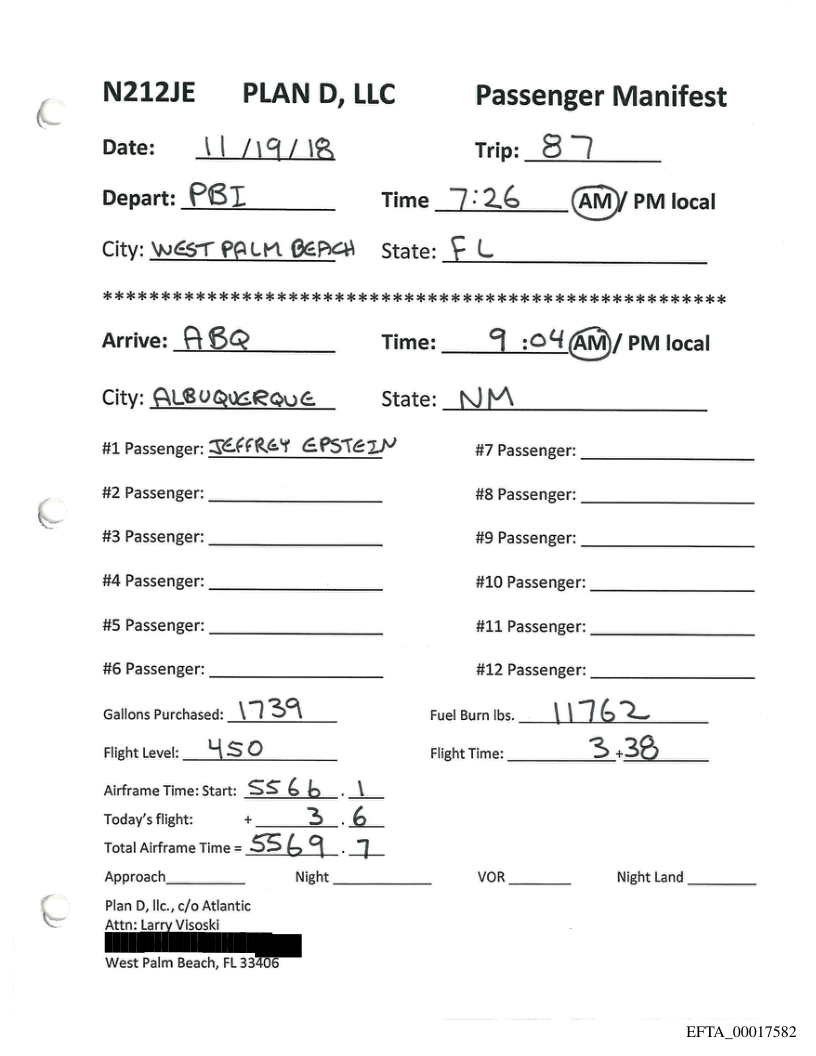 N212JE PLAN D, LLC Passenger Manifest
Date: 11/19/18 Trip: 87
Depart: PBI Time 7:26 AM/ PM local
City: WEST PALM BEACH State: FL
******************************************************
Arrive: ABQ Time: 9:04 AM/ PM local
City: ALBUQUERQUE State: NM
#1 Passenger: JEFFREY EPSTEIN #7 Passenger:
#2 Passenger: #8 Passenger:
#3 Passenger: #9 Passenger:
#4 Passenger: #10 Passenger:
#5 Passenger: #11 Passenger:
#6 Passenger: #12 Passenger:
Gallons Purchased: 1739 Fuel Burn lbs. 11762
Flight Level: 450 Flight Time: 3+38
Airframe Time: Start: 5566.1
Today's flight: + 3.6
Total Airframe Time = 5569.7
Approach Night VOR Night Land
Plan D, llc., c/o Atlantic
Attn: Larry Visoski
West Palm Beach, FL 33406
EFTA_00017582